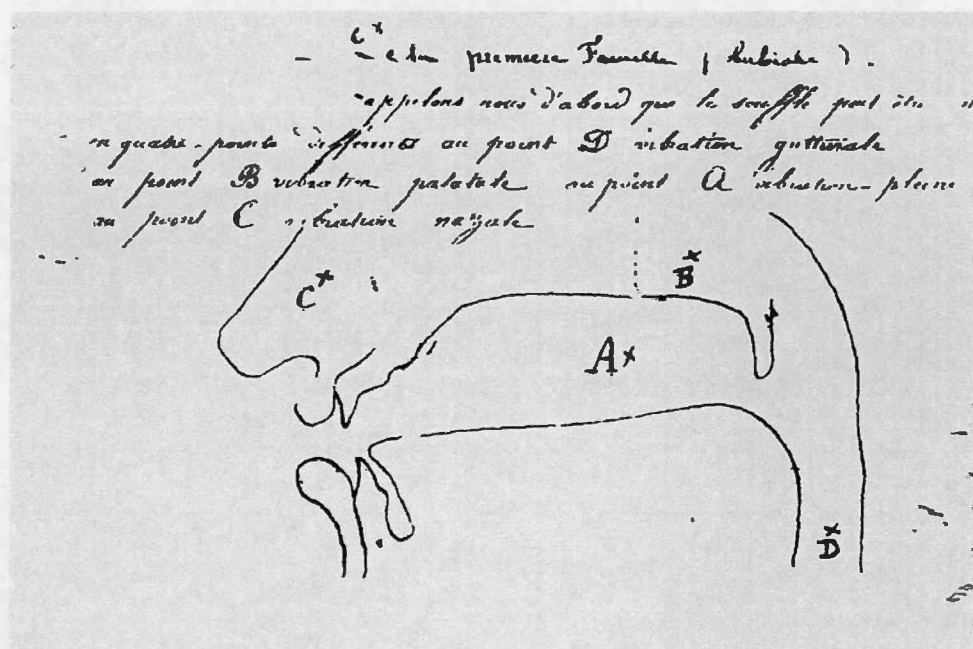 C
première
appelons nous d'abord que le souffle peut être
en quatre points différents au point D vibration gutturale
au point B vibration palatale au point A vibration pleine
au point C vibration nazale
B
C
A
D